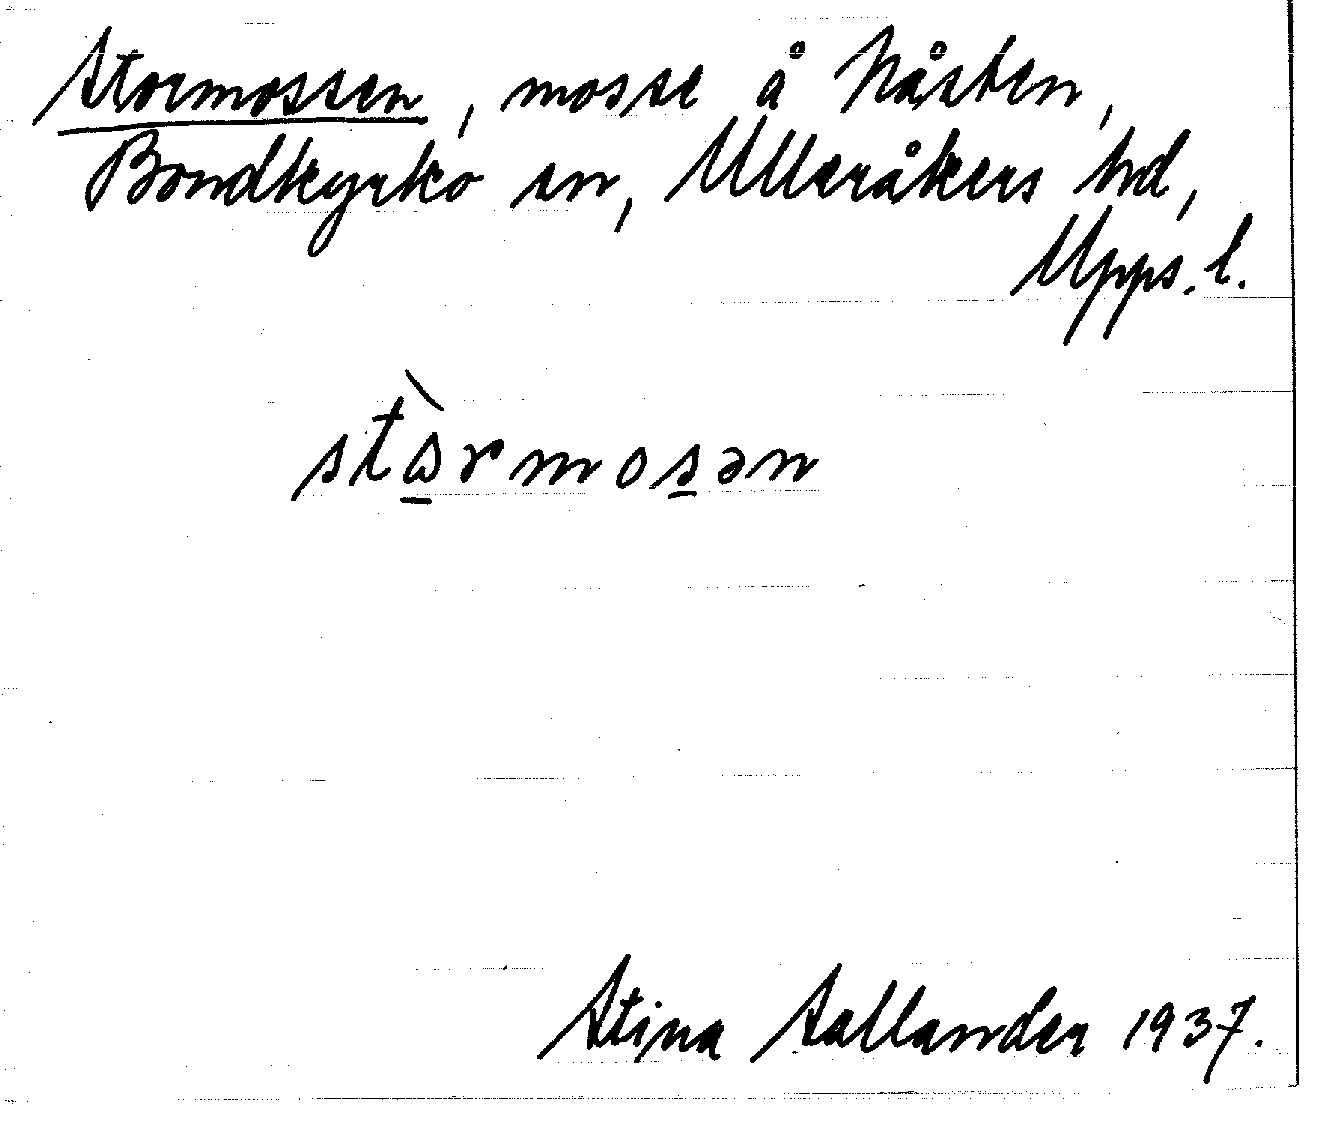 Stormossen, mosse å Nåsten,
Bondkyrko sn, Ulleråkers hd,
Upps. l.
stɷ̠̀rmos̠ən
Stina Sallander 1937.